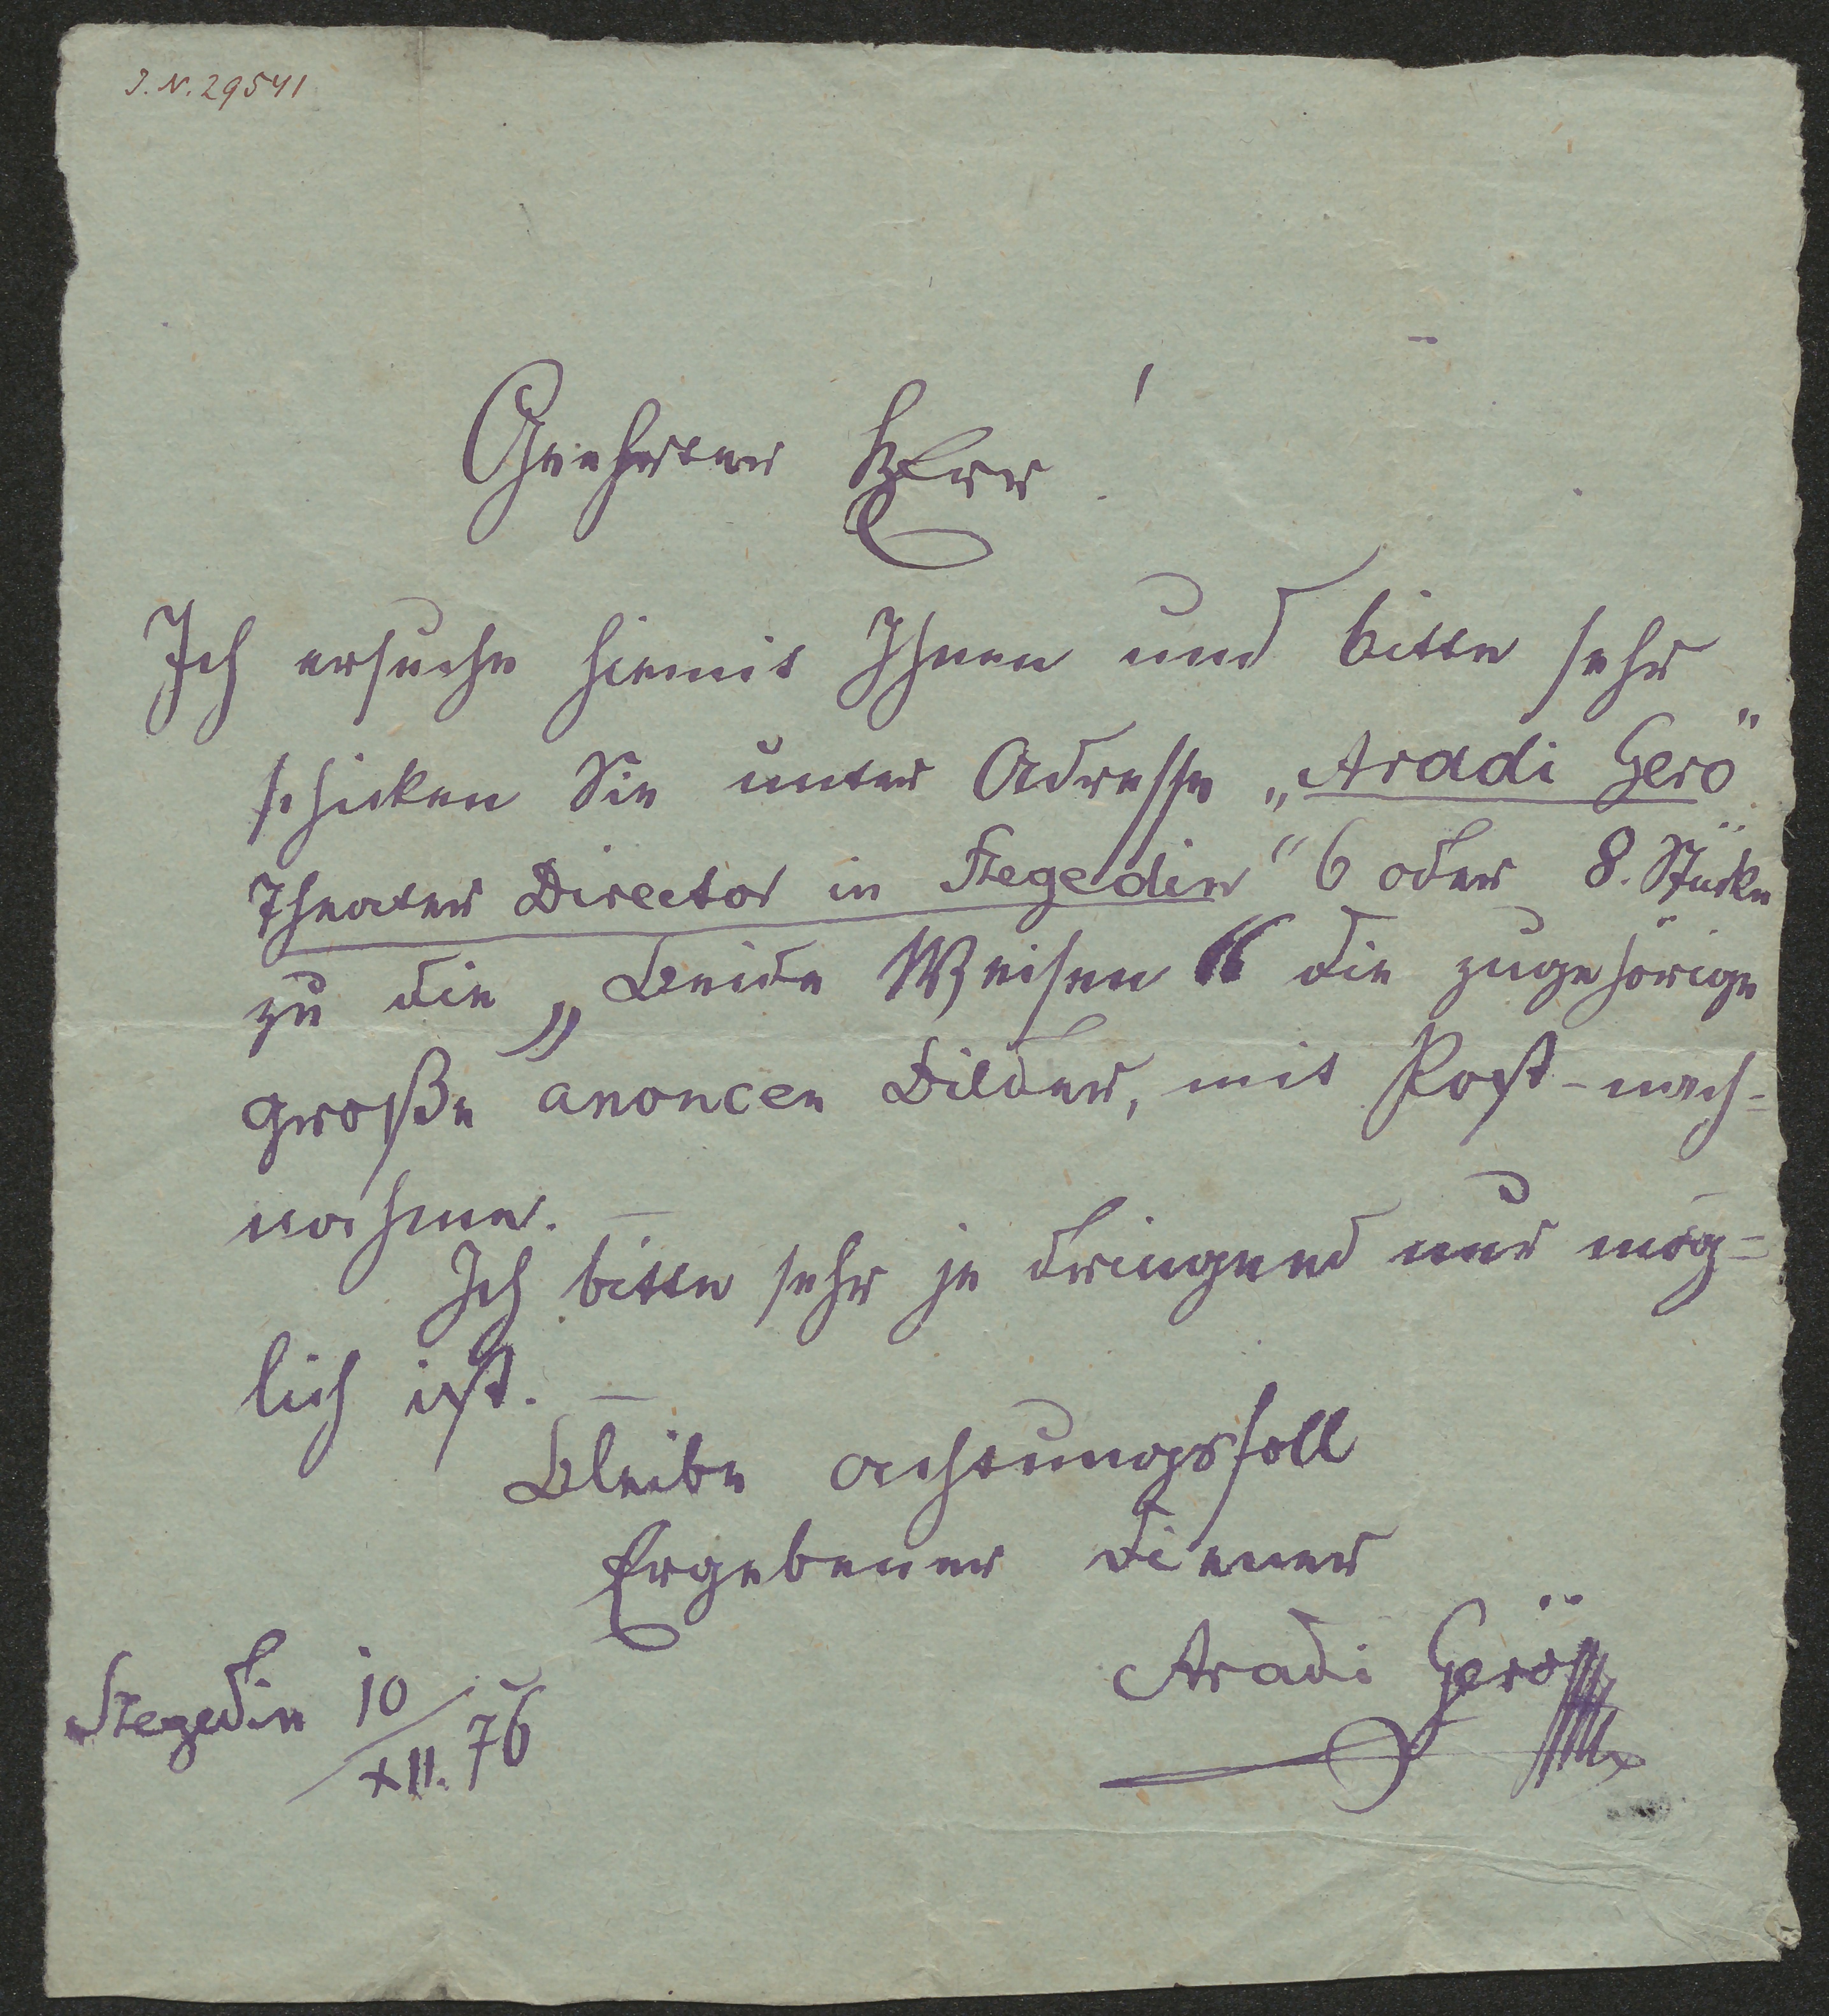 J. N. 29541
Geehrter Herr!
Ich ersuche hiemit Ihnen und bitte sehr
schicken Sie unter Adresse „Aradi Gerö"
Theater Director in Szegedin" 6 oder 8. Stücke
zu die „beide Weisen" die zugehörige
große anoncen Bilder, mit Post-nach-
nahme. —
Ich bitte sehr je dringend nur mög-
lich ist. —
Bleibe achtungsfoll
Ergebener diener
Aradi Gerö
Szegedin 10/XII. 76